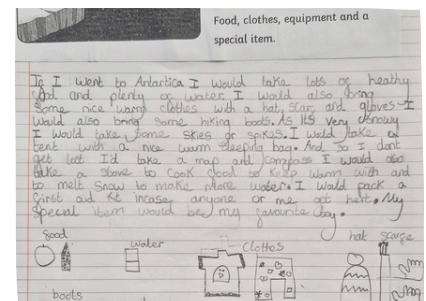 Food, clothes, equipment and a
special item.
If I went to Antartica I would take lots of heathy
food and plenty or water. I would also bring
some nice warm clothes with a hat, scarf and gloves. I
would also bring some hiking boots. As its very snowy
I would take some skies or spikes. I would take a
tent with a nice warm sleeping bag. And so I dont
get lott I'd take a map and compass I would also
take a stove to cook food to keep warm with and
to melt snow to make more water. I would pack a
first aid kit incase anyone or me got hert. My
special item would be my favourite toy.
food
water
Clothes
hat
scarfe
boots